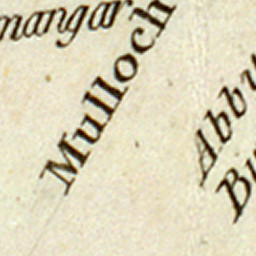 mangar
Mulloch
Abbu
Bu